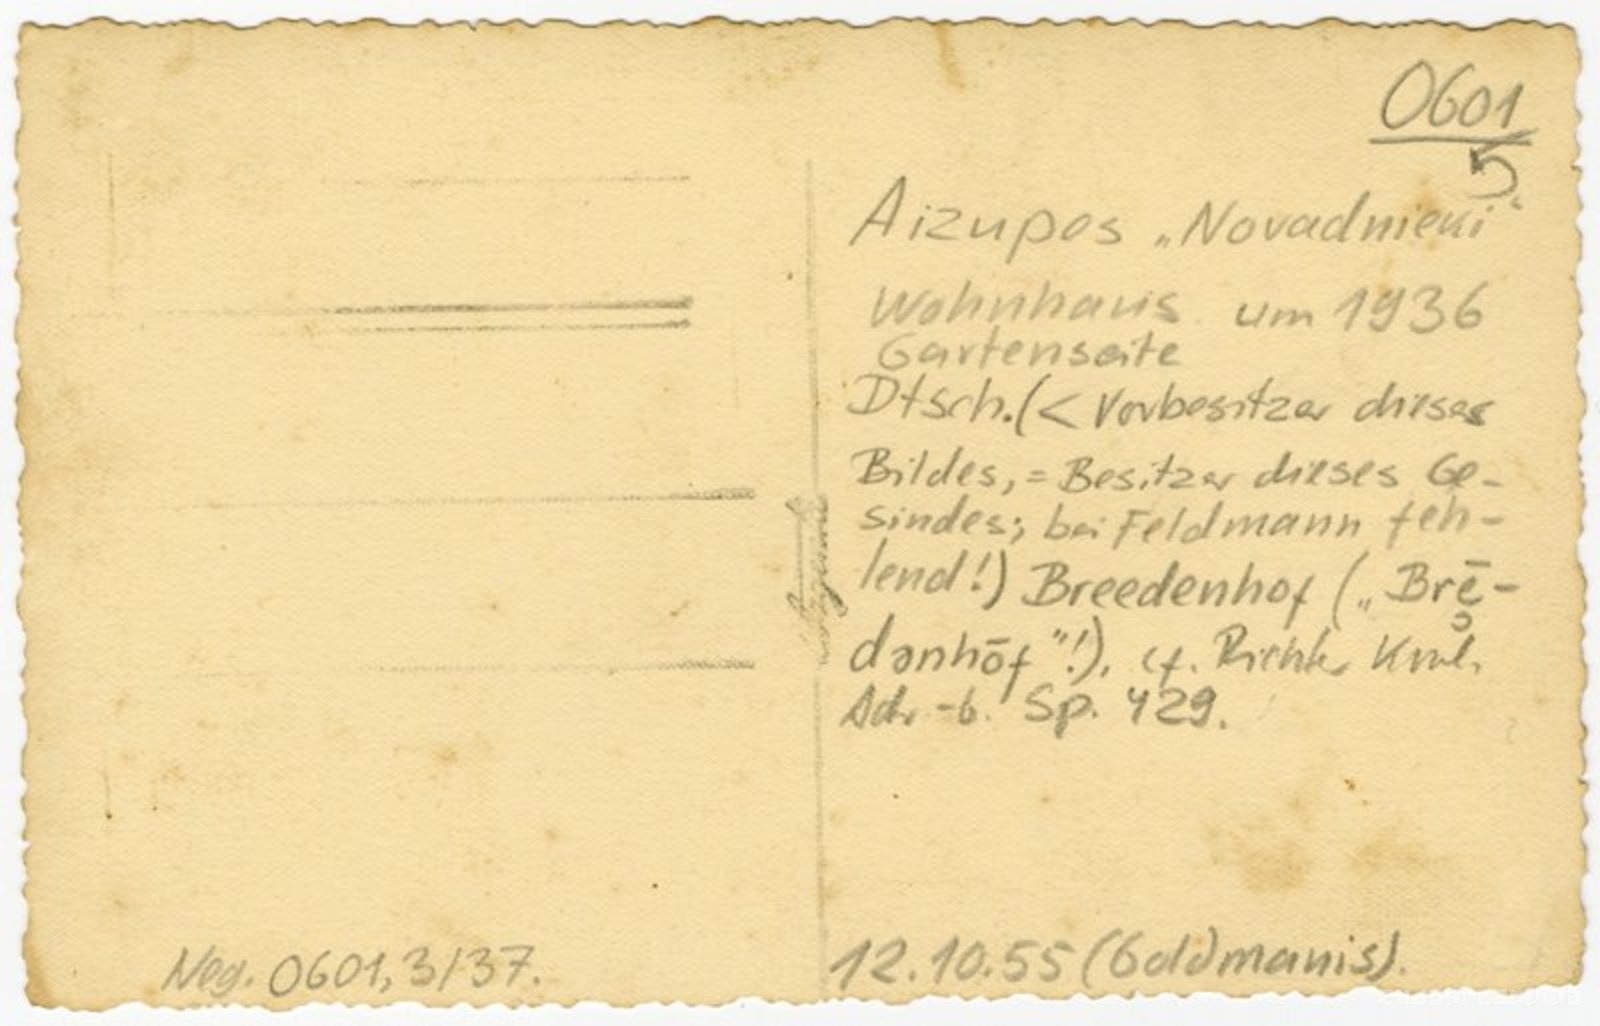 0601
Aizupes „Novadnieki“
Wohnhaus um 1936
Gartenseite
Dtsch. (< Vorbesitzer dieses
Bildes, = Besitzer dieses Ge-
sindes; bei Feldmann feh-
lend!) Breedenhof („Brē-
danhōf“!), cf. Richter
Adr.-b. Sp. 429.
Neg. 0601, 3/37.
12.10.55 (Goldmanis).